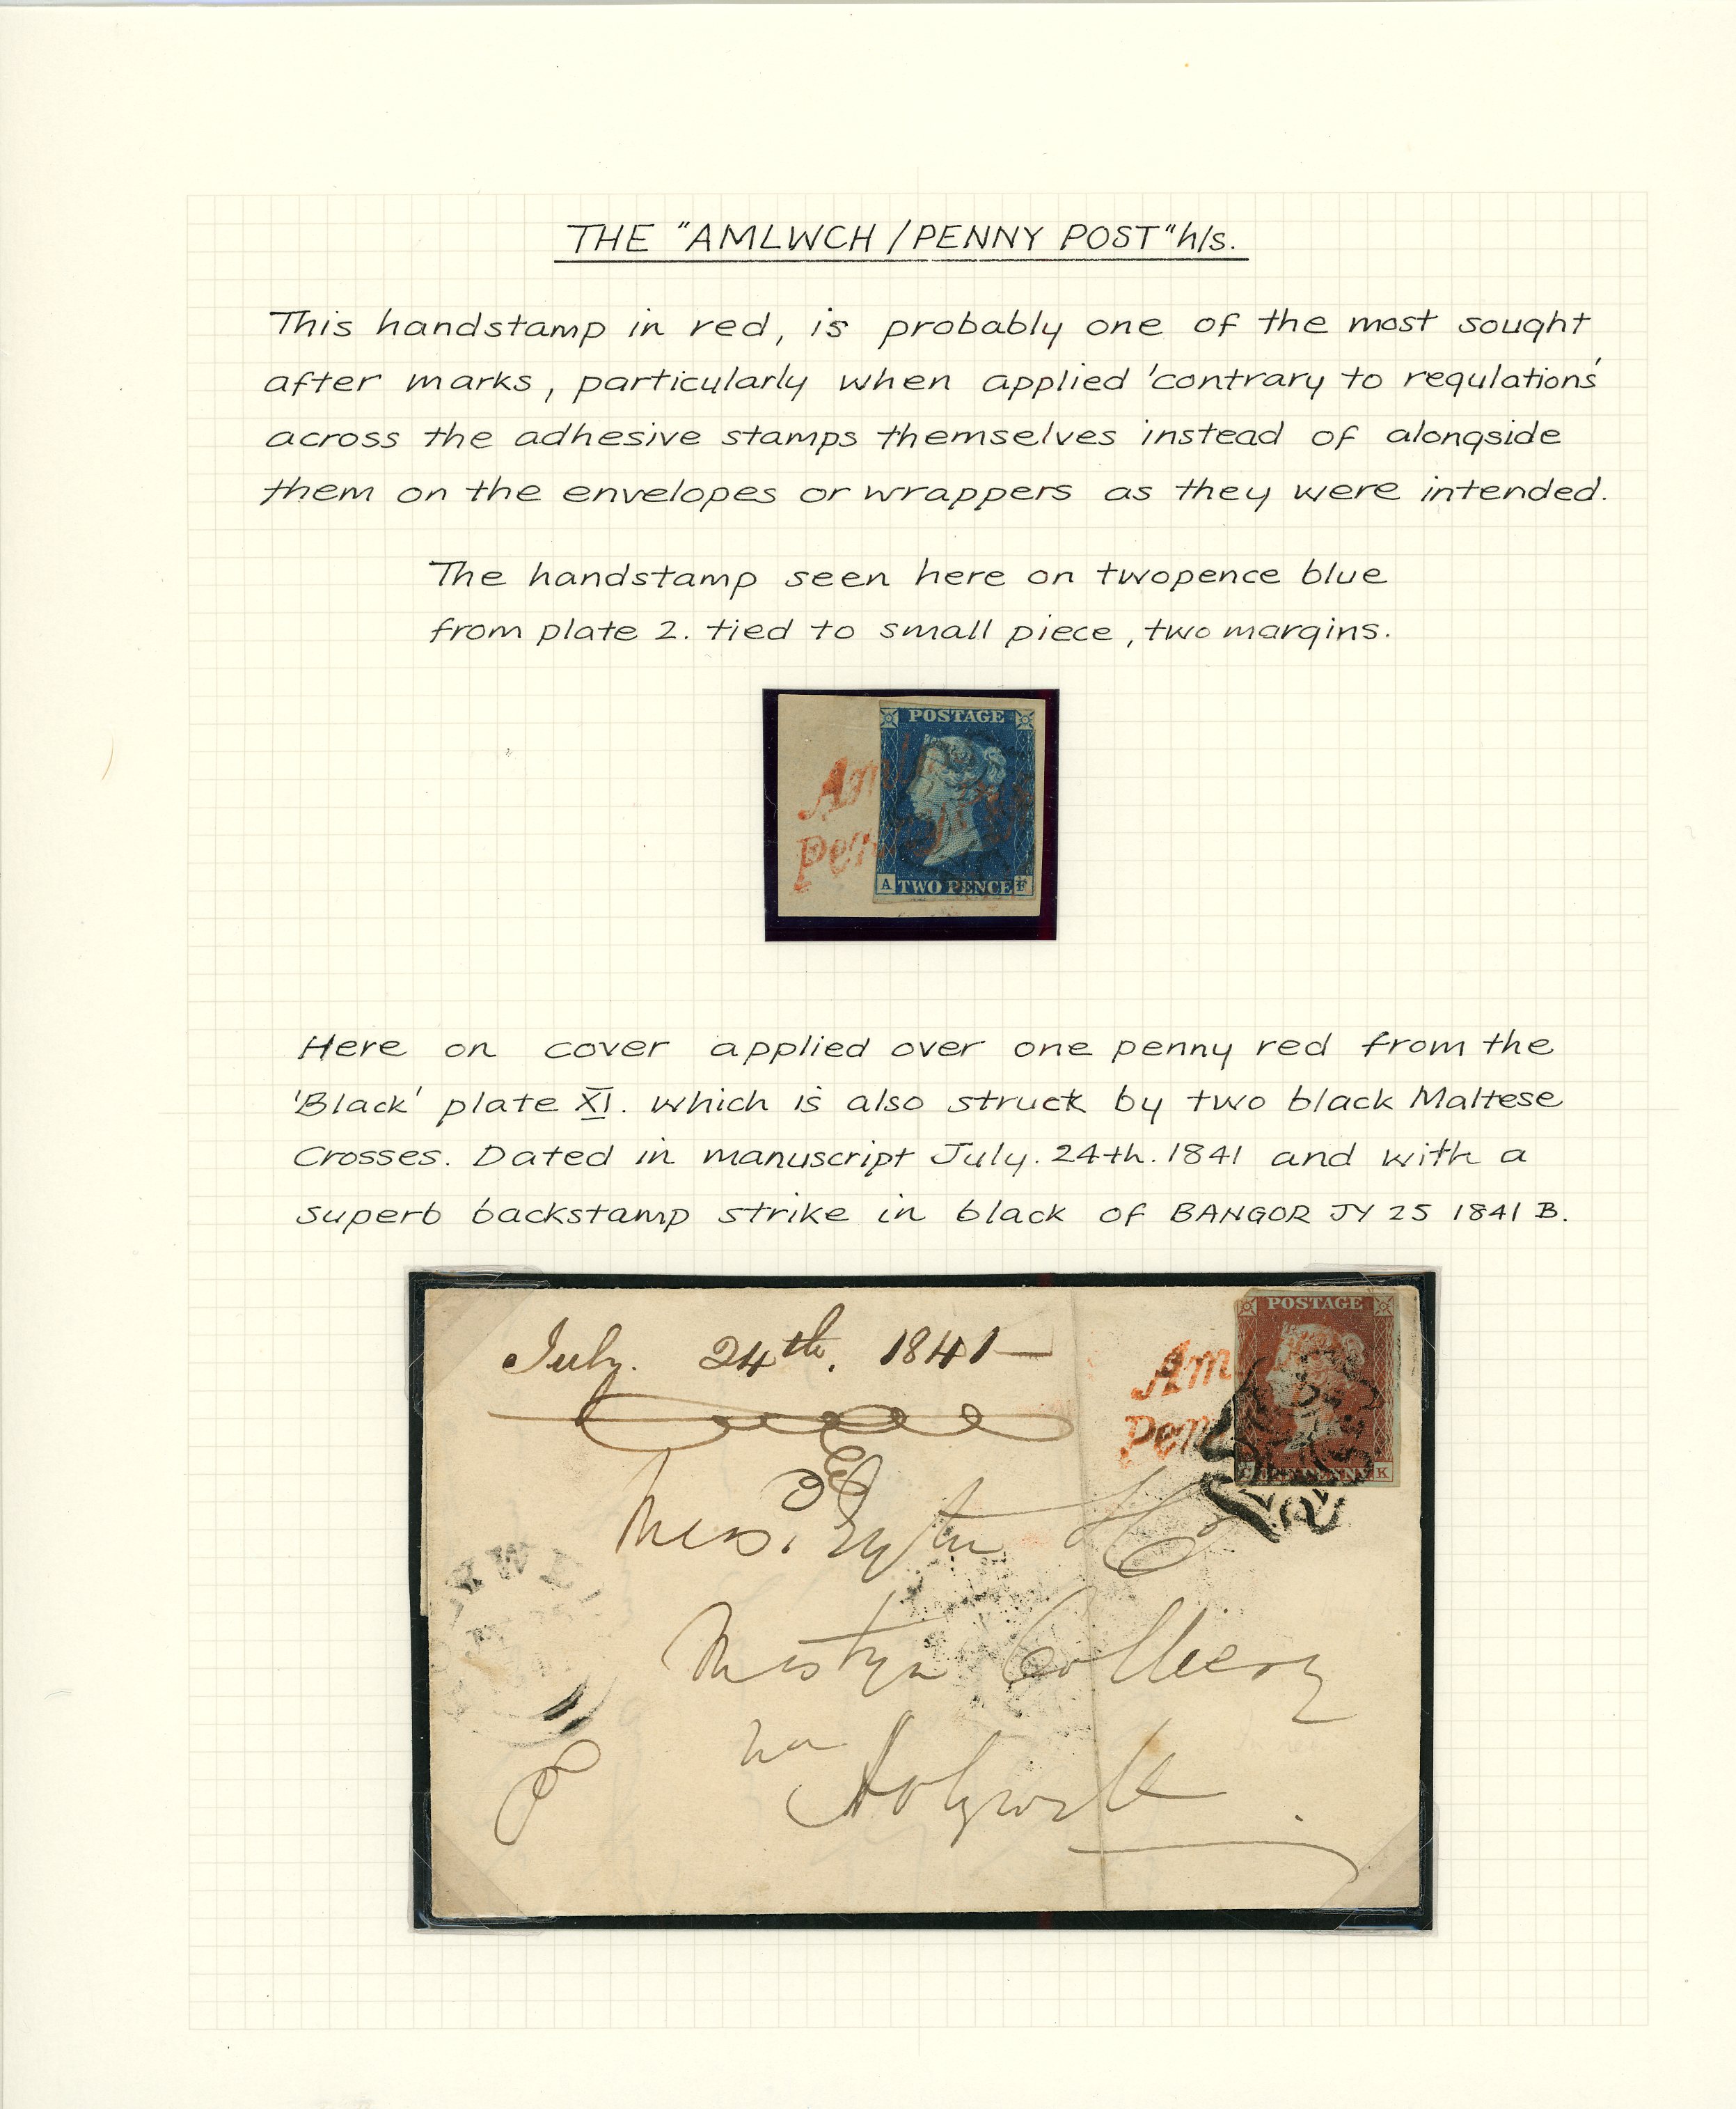 THE "AMLWCH / PENNY POST" h/s.
This handstamp in red, is probably one of the most sought
after marks, particularly when applied 'contrary to regulations'
across the adhesive stamps themselves instead of alongside
them on the envelopes or wrappers as they were intended.
The handstamp seen here on twopence blue
from plate 2. tied to small piece, two margins.
POSTAGE
Am
Pen
A TWO PENCE F
Here on cover applied over one penny red from the
'Black' plate XI. which is also struck by two black Maltese
Crosses. Dated in manuscript July. 24th. 1841 and with a
superb backstamp strike in black of BANGOR JY 25 1841 B.
POSTAGE
July. 24th. 1841
Am
Pen
PENNY K
Mess. Eyton & Co
Mostyn Colliery
Holywell